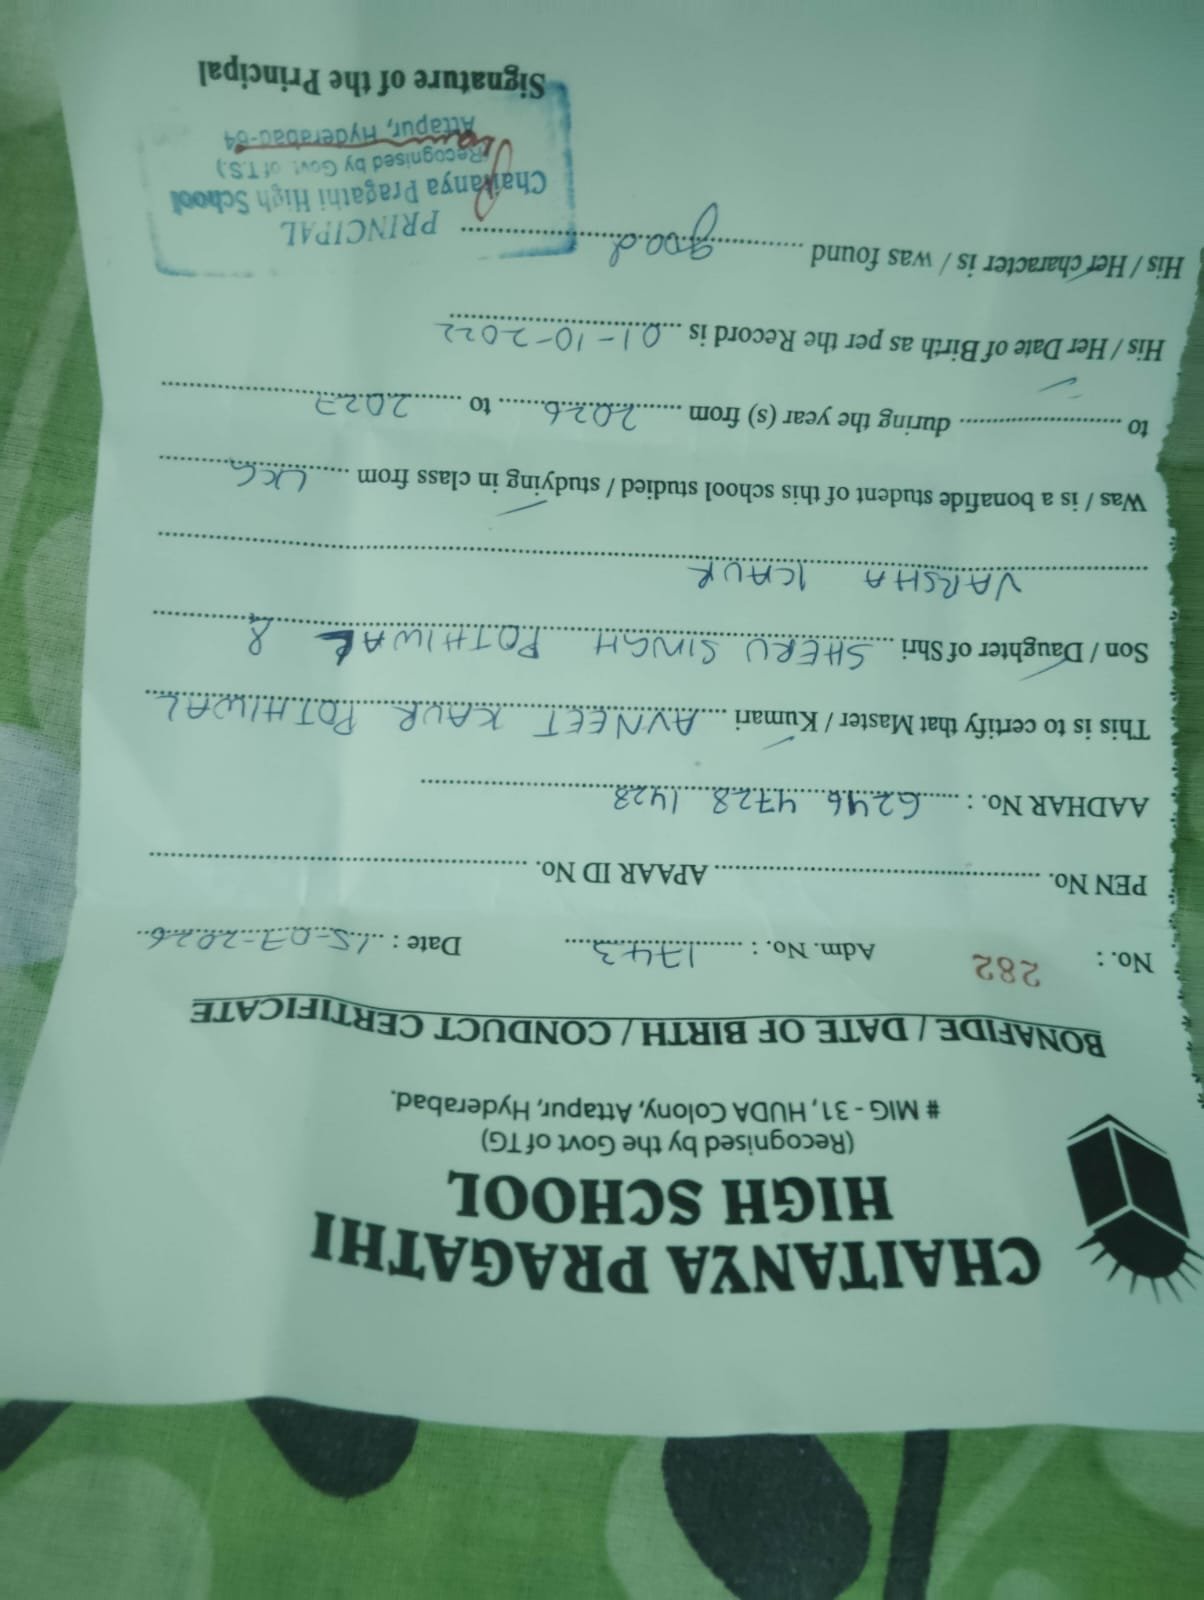 CHAITANYA PRAGATHI
HIGH SCHOOL
(Recognised by the Govt of TG)
# MIG - 31, HUDA Colony, Attapur, Hyderabad.
BONAFIDE / DATE OF BIRTH / CONDUCT CERTIFICATE
No. : 282 Adm. No. : 1743 Date : 15-07-2026
PEN No. APAAR ID No.
AADHAR No. : 6246 4728 1428
This is to certify that Master / Kumari AVNEET KAUR POTHIWAL
Son / Daughter of Shri SHERU SINGH POTHIWAL &
VARSHA KAUR
Was / is a bonafide student of this school studied / studying in class from UKG
to during the year (s) from 2026 to 2027
His / Her Date of Birth as per the Record is 01-10-2022
His / Her character is / was found good
PRINCIPAL
Chaitanya Pragathi High School
(Recognised by Govt of T.S.)
Attapur, Hyderabad-64
Signature of the Principal